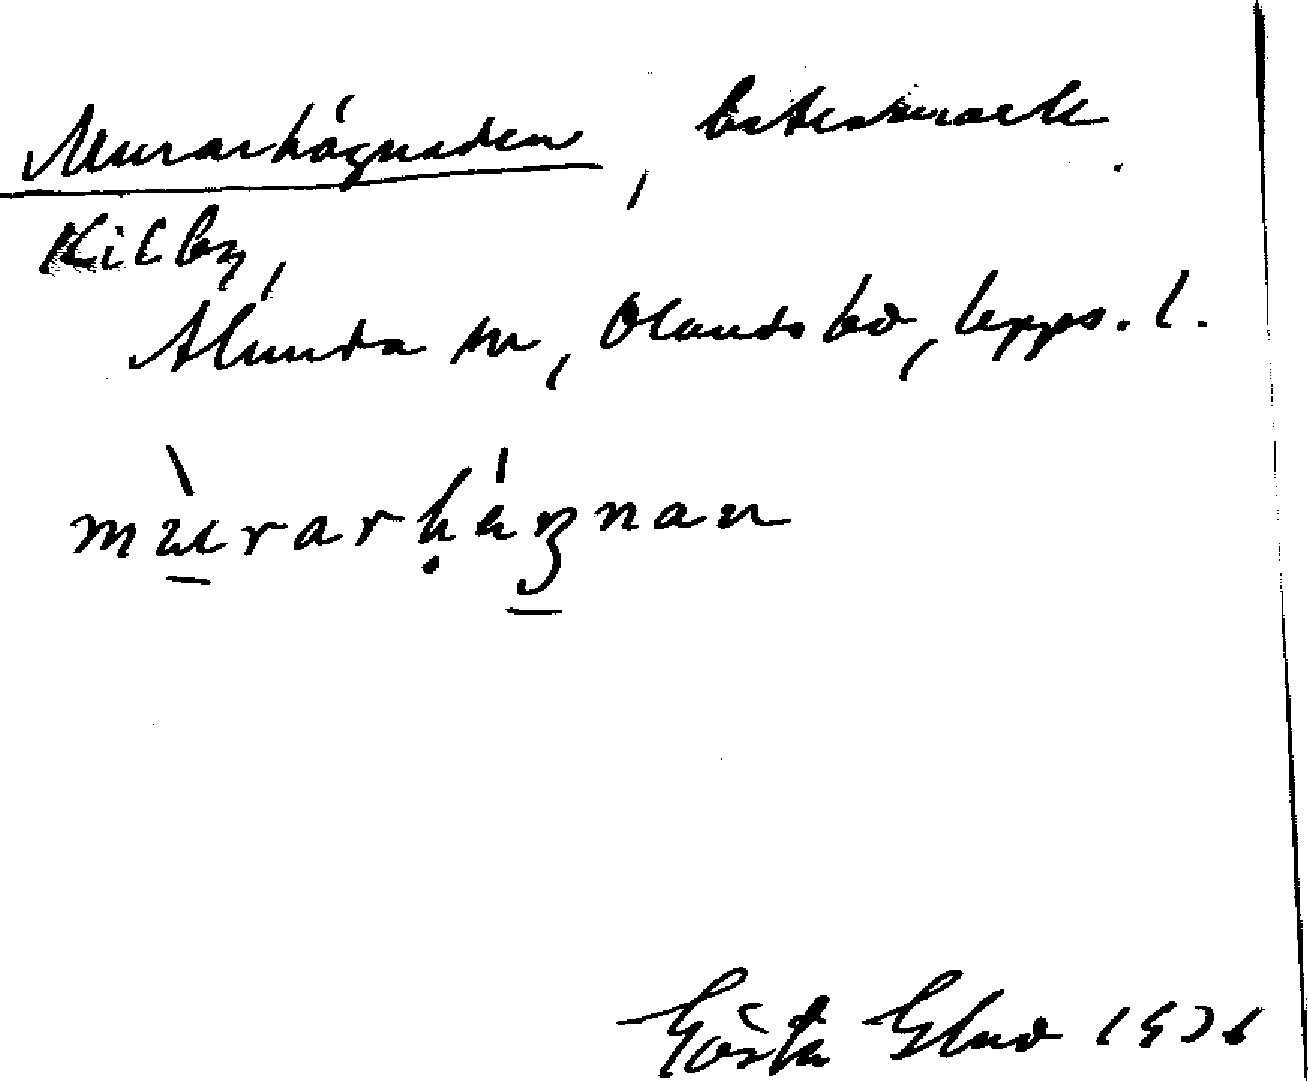 Murarhägnaden, betesmark.
Kilby,
Alunda sn, Olands hd, Upps. l.
mùrarhágnan
Gösta